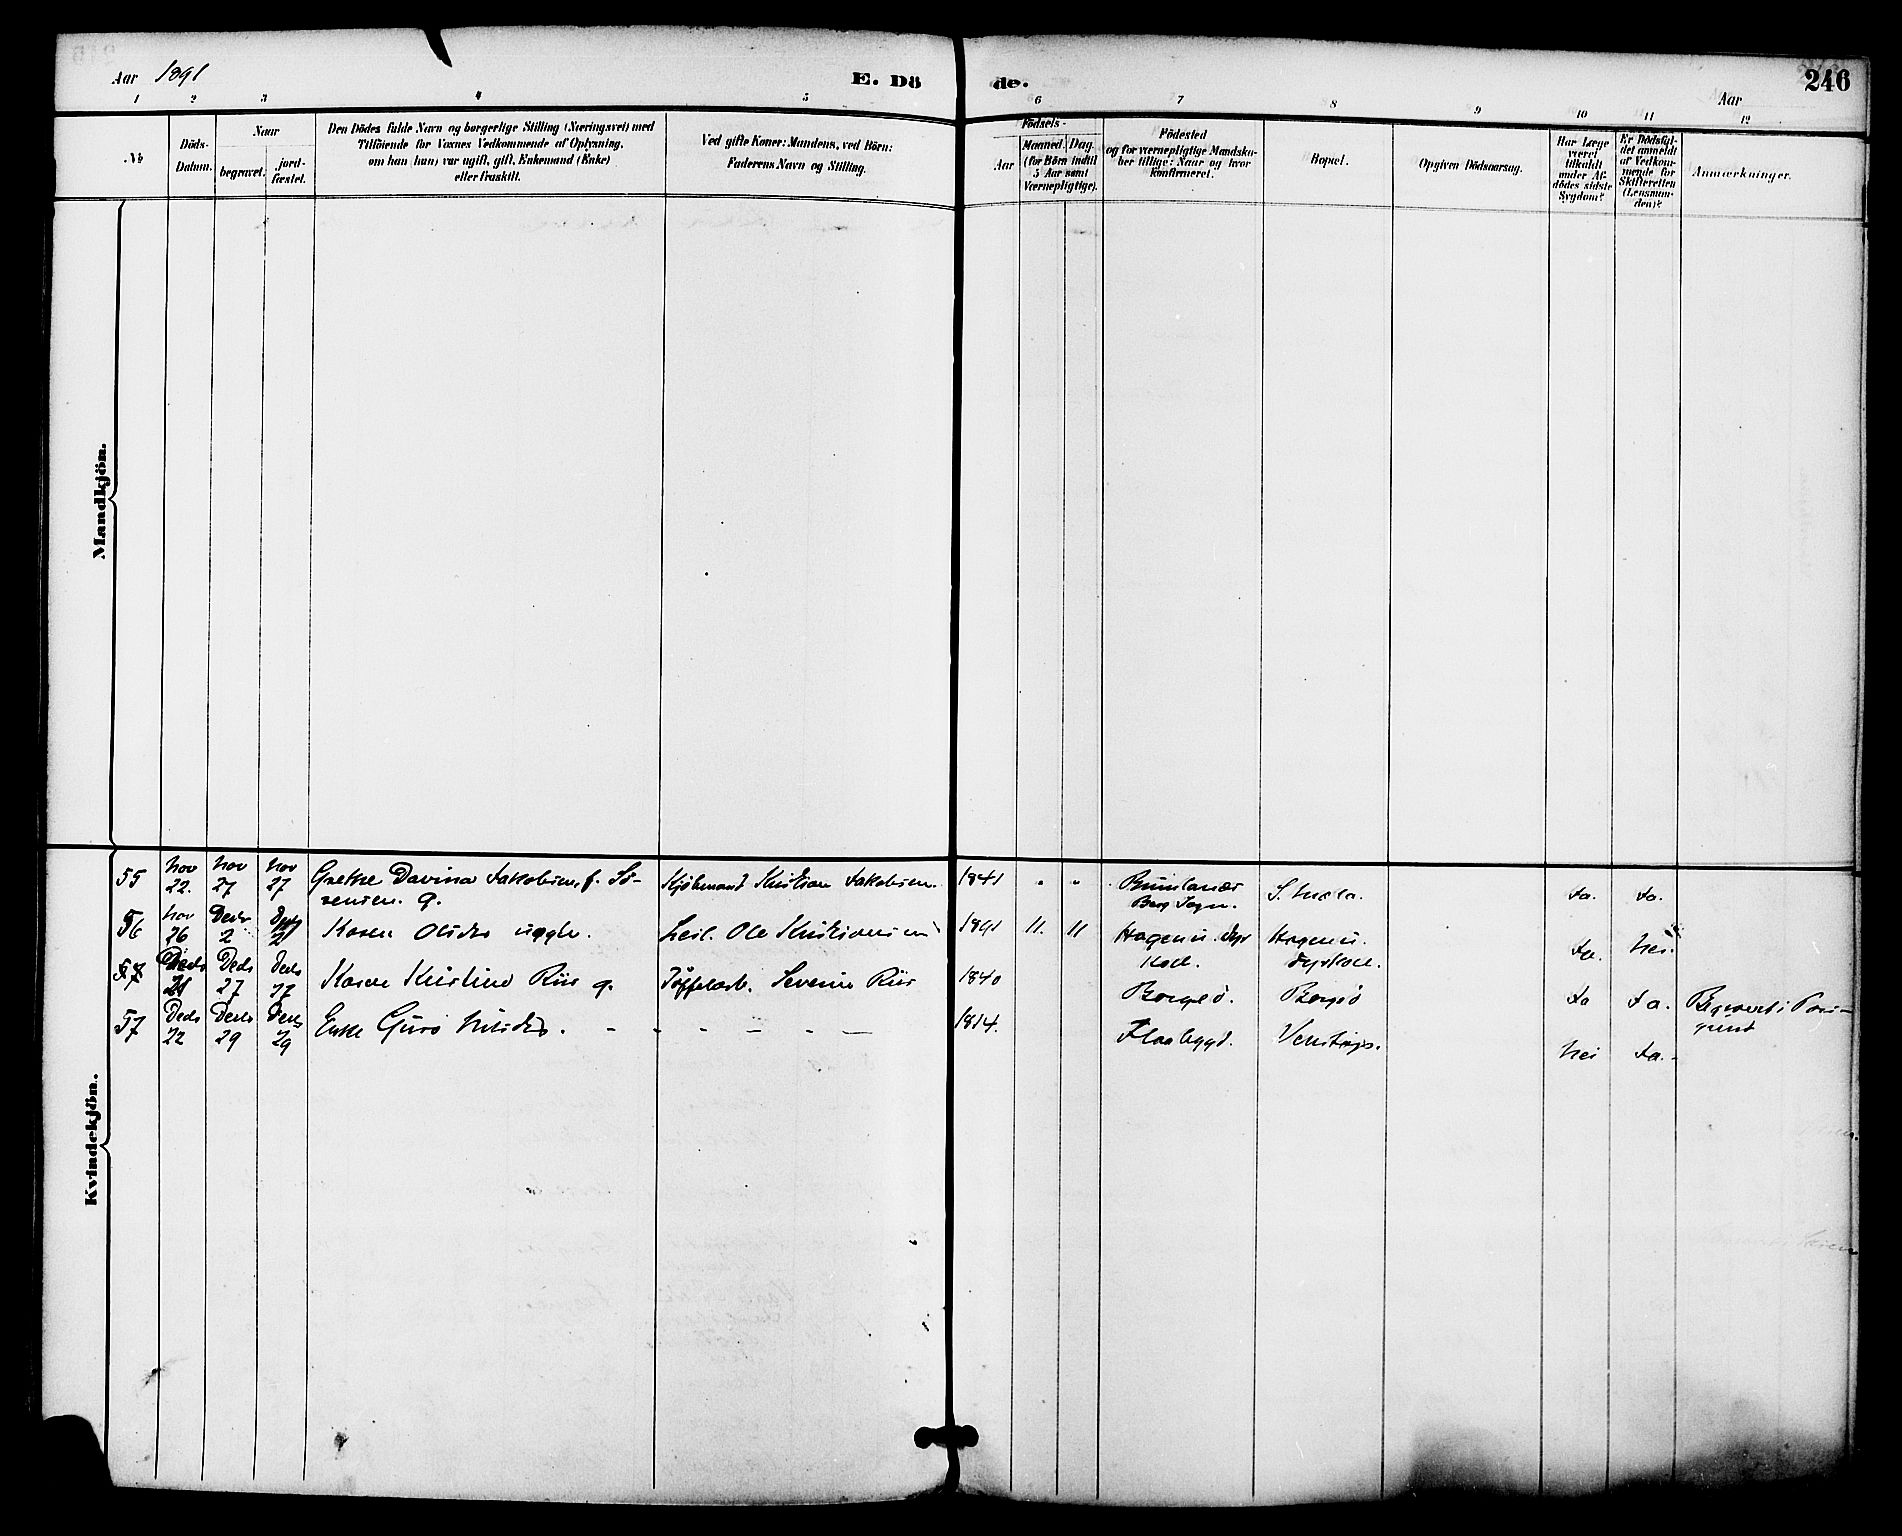 Aar 1891
E. Dö
de.
246
Aar
1 2 3 4 5 6 7 8 9 10 11 12
№
Döds-
Datum.
Naar
begravet.
jord-
fæstet.
Den Dödes fulde Navn og borgerlige Stilling (Næringsvei) med
Tilföiende for Voxnes Vedkommende af Oplysning,
om han (hun) var ugift, gift, Enkemand (Enke)
eller fraskilt.
Ved gifte Koner: Mandens, ved Börn:
Faderens Navn og Stilling.
Födsels-
Aar
Maaned. Dag
(for Börn indtil
5 Aar samt
Værnepligtige).
Födested
og for værnepligtige Mandska-
ber tillige: Naar og hvor
konfirmeret.
Bopæl.
Opgiven Dödsaarsag.
Har Læge
været
tilkaldt
under Af-
dödes sidste
Sygdom?
Er Dödsfal-
det anmeldt
af Vedkom-
mende for
Skifteretten
(Lensman-
den)?
Anmærkninger.
Mandkjön.
Kvindekjön.
55 Nov 22. Nov 27 Nov 27 Grethe Davina Jakobsen, f. Sö- Kjöbmand Kristian Jakobsen. 1841 " " Brunlanæs S. Ja. Ja.
rensen. g. Berg Sogn.
56 Nov 26 Decbr 2 2 Karen Olsdtr Leil. Ole Kristiansen 1891 11. 11 Hagen u. Hagen u. Ja. Nei.
Dyrkoll.
57 Decb 21 Decb 27 Decb 27 Karen Kristine Riis g. Severin Riis 1840 Borgeö. Borgeö Ja Ja. Begravet i Pors-
grund
57 Decb 22 Decb 29 Decb 29 Enke Guro Nilsdtr. - - - - - — 1814. Flaabygd. Nei Ja.